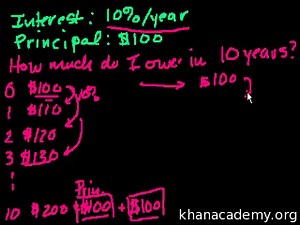 Interest: 10%/year
Principal: $100
How much do I owe in 10 years?
0 $100 10% → $100
1 $110
2 $120
3 $130
Prin.
10 $200 = $100 + $100
khanacademy.org